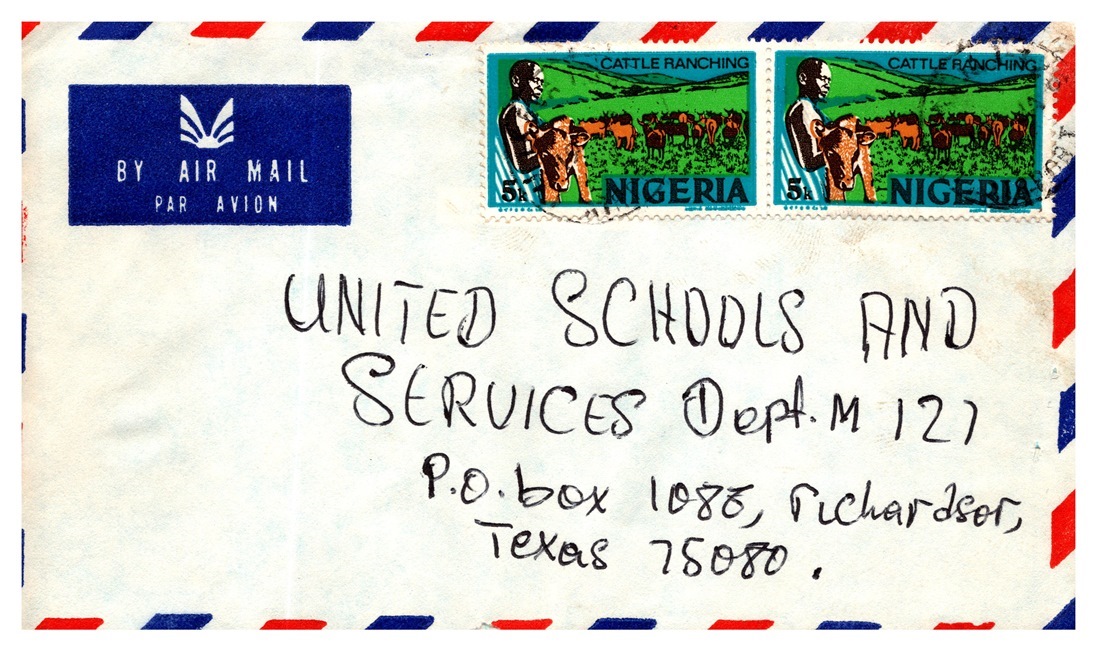 BY AIR MAIL
PAR AVION
CATTLE RANCHING
5k NIGERIA
CATTLE RANCHING
5k NIGERIA
UNITED SCHOOLS AND
SERVICES Dept. M 127
P.O. box 1088, richardson,
Texas 75080.